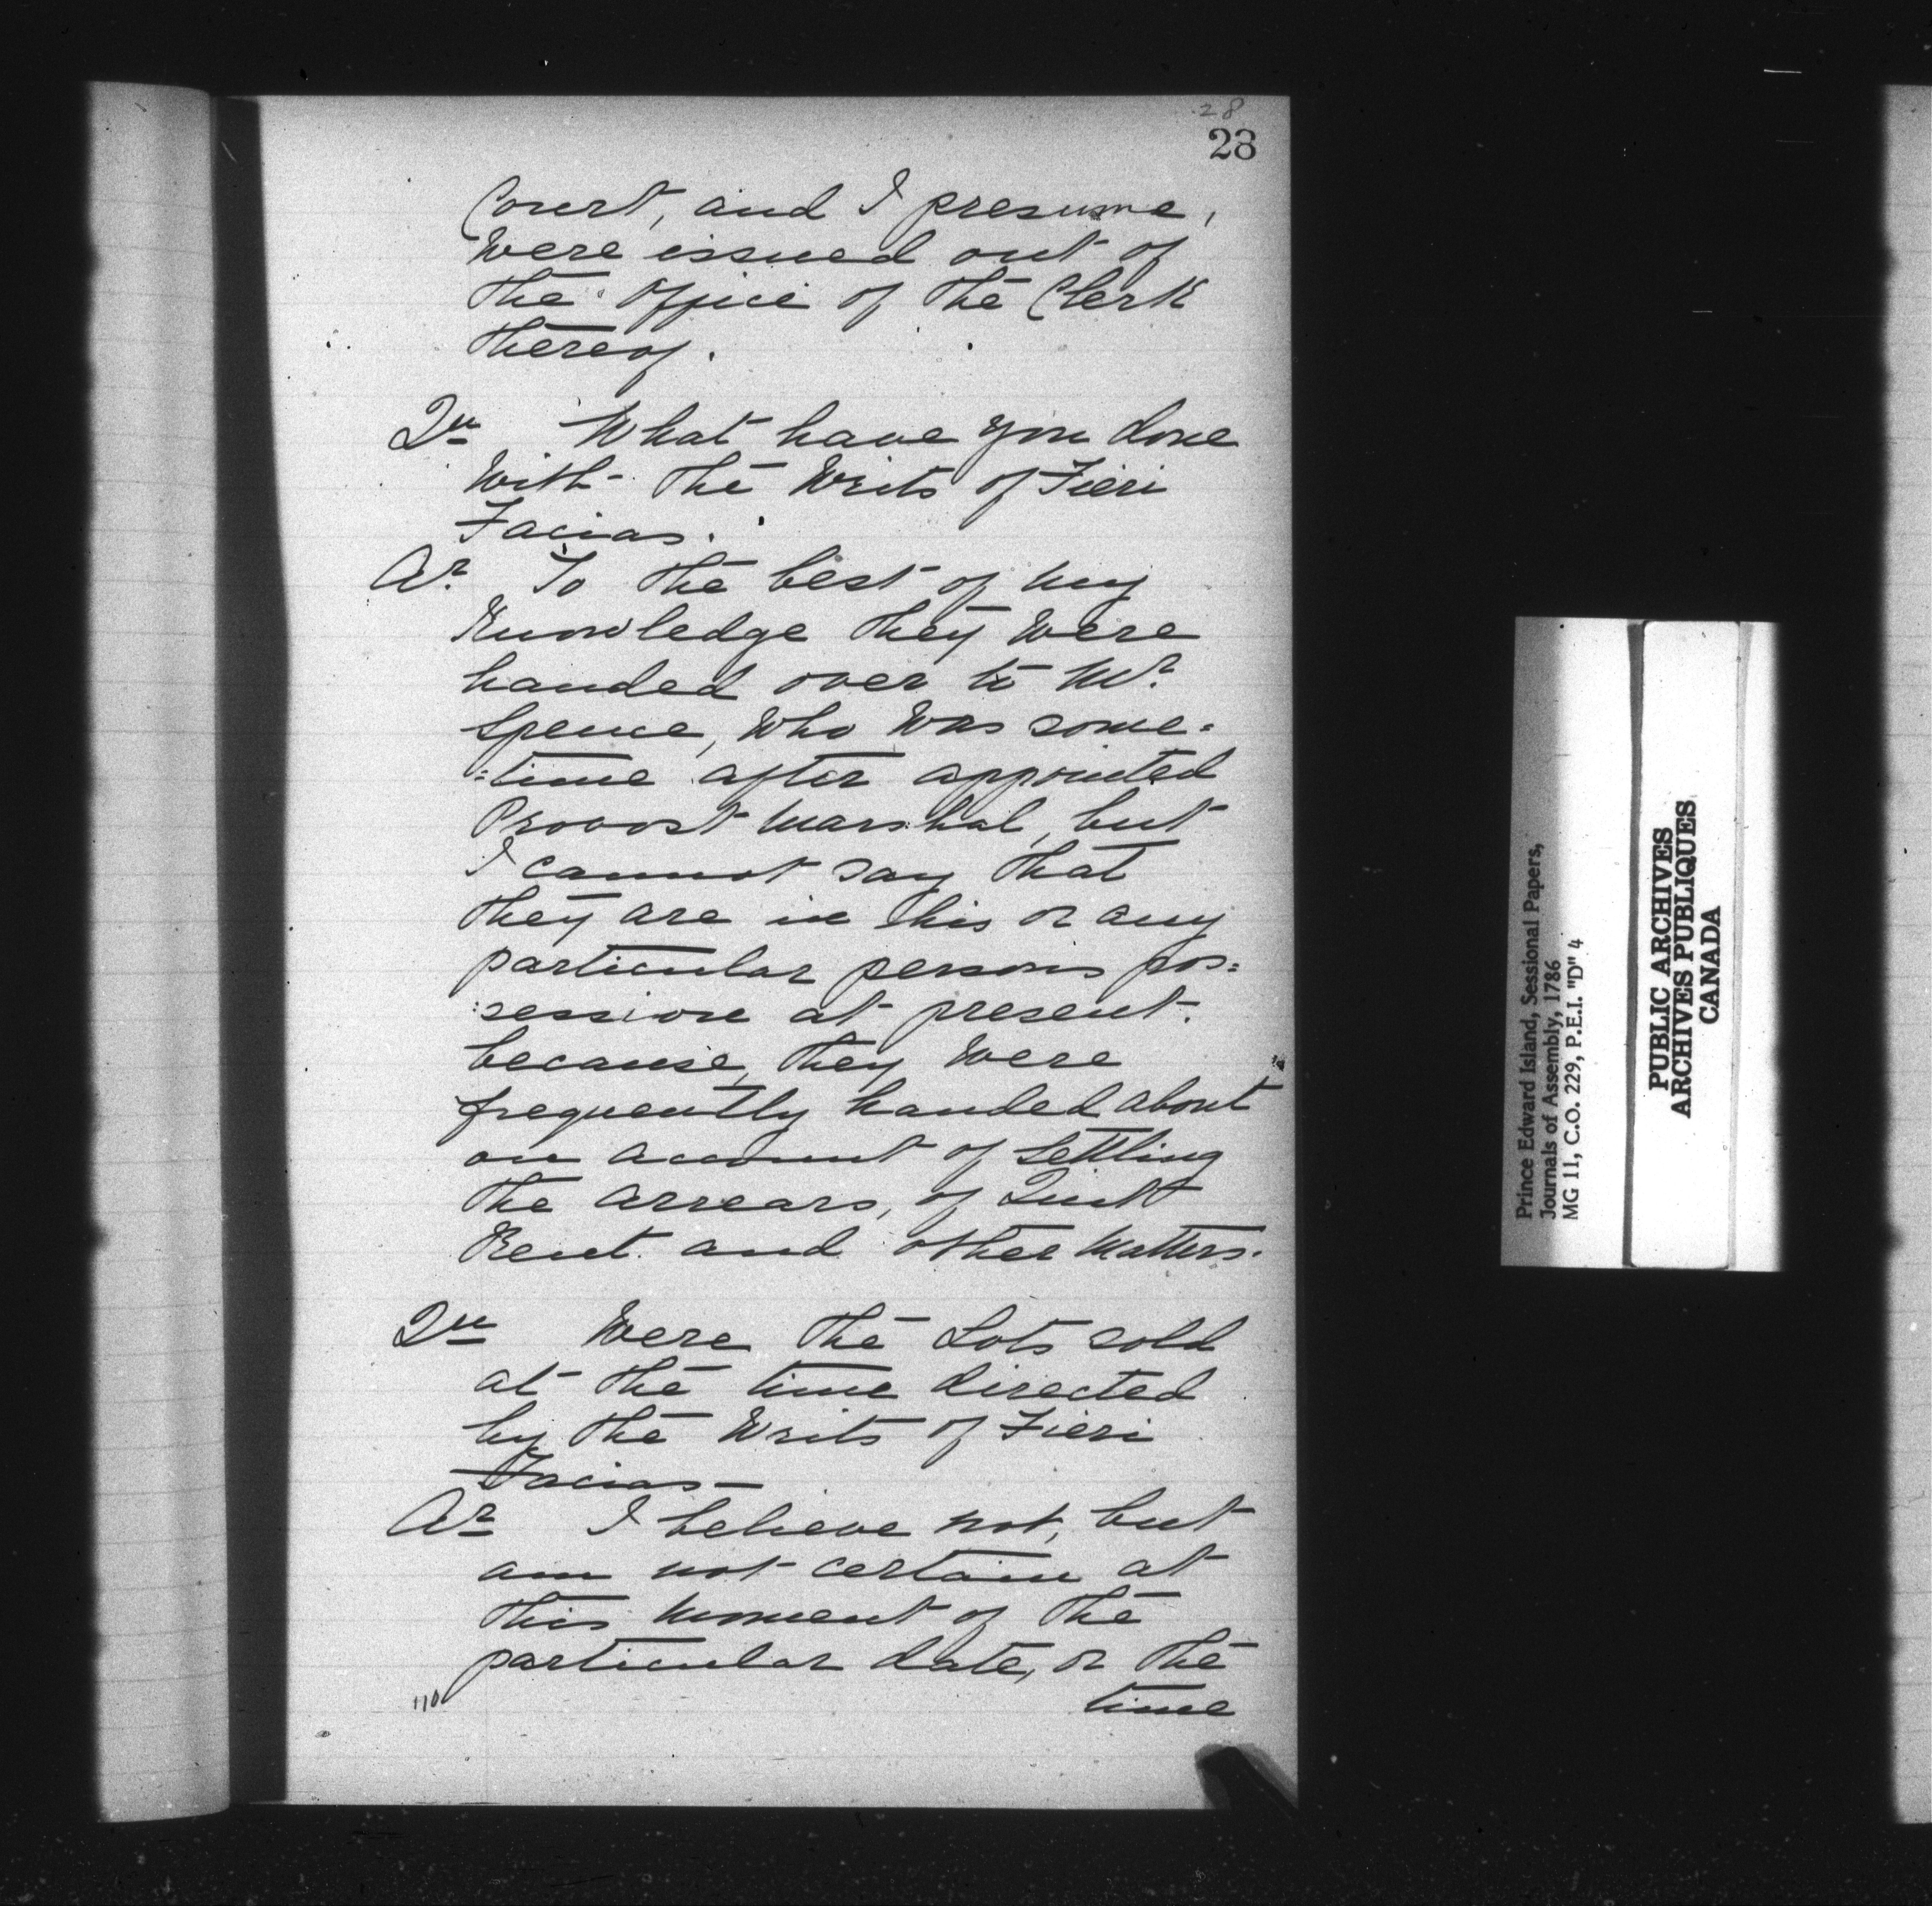 28
23
Court, and I presume,
Were issued out of
the Office of the Clerk
thereof.
Qu What have you done
With the Writs of Fieri
Facias.
Ar. To the best of my
Knowledge they Were
handed over to Mr.
Spence, Who Was some=
=time after appointed
Provost Marshal, but
I cannot say that
they are in this or any
particular persons pos=
=session at present.
because, they Were
frequently handed about
on account of Settling
the Arrears, of Quit
Rent and other Matters.
Qu Were the Lots sold
at the time directed
by the Writs of Fieri
Facias—
Ar I believe not, but
am not certain at
this Moment of the
particular date, or the
110
time
Prince Edward Island, Sessional Papers,
Journals of Assembly, 1786
MG 11, C.O. 229, P.E.I. "D" 4
PUBLIC ARCHIVES
ARCHIVES PUBLIQUES
CANADA